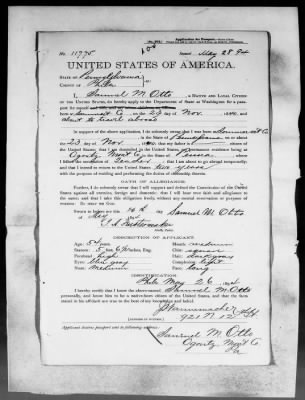 [No. 176.]
Application for Passport.
No. 11775
Issued May 28 94
UNITED STATES OF AMERICA.
STATE OF Pennsylvania
COUNTY OF Phila
I, Samuel M. Otto, a NATIVE AND LOYAL CITIZEN
OF THE UNITED STATES, do hereby apply to the Department of State at Washington for a passport
for myself
born at Somerset Co on the 23 day of Nov.
about to travel abroad
In support of the above application, I do solemnly swear that I was born at Somerset Co
in the State of Pennsylvania on
or 23 day of Nov. that my father is a citizen
of the United States; that I am domiciled in the United States, permanent residence being at
Ogontz Mont Co in the State of Penna. where I
follow the occupation of Teacher; that I am about to go abroad temporarily,
and that I intend to return to the United States two years with the
purpose of residing and performing the duties of citizenship therein.
OATH OF ALLEGIANCE.
Further, I do solemnly swear that I will support and defend the Constitution of the United
States against all enemies, foreign and domestic; that I will bear true faith and allegiance to
the same; and that I take this obligation freely, without any mental reservation or purpose of
evasion: So help me God.
Sworn to before me this 26th day
of May Samuel M. Otto
Notary Public.
DESCRIPTION OF APPLICANT.
Age: 54 years Mouth: medium
Stature: 5 feet 6½ inches, Eng. Chin: square
Forehead: high Hair: dark gray
Eyes: blue gray Complexion: light
Nose: medium Face: long
IDENTIFICATION.
Phila May 26 1894
I hereby certify that I know the above-named Samuel M. Otto
personally, and know him to be a native-born citizen of the United States, and that the facts
stated in his affidavit are true to the best of my knowledge and belief.
921 N 12
[ADDRESS OF WITNESS.]
Applicant desires passport sent to following address:
Samuel M. Otto
Ogontz, Mont Co
Pa